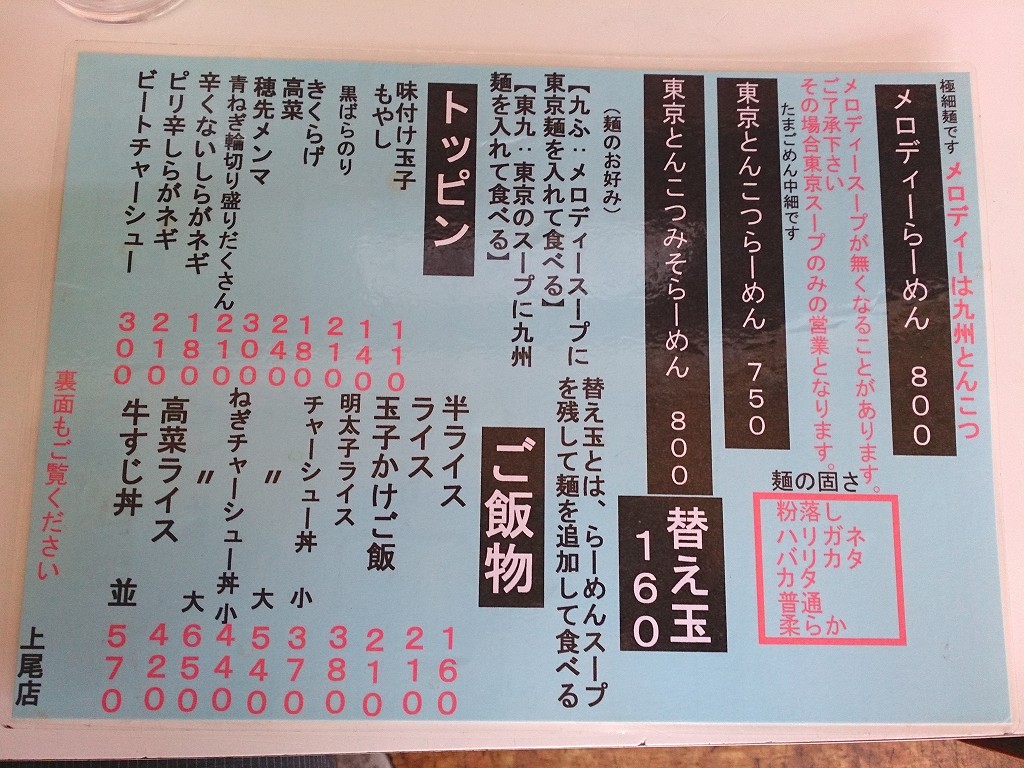 メロディーは九州とんこつ
極細麺です
メロディーらーめん 800
メロディースープが無くなることがあります。
ご了承下さい
その場合東京スープのみの営業となります。
たまごめん中細です
東京とんこつらーめん 750
東京とんこつみそらーめん 800
麺の固さ
粉落し
ハリガネ
バリカタ
カタ
普通
柔らか
(麺のお好み)
【九ふ:メロディースープに
東京麺を入れて食べる】
【東九:東京のスープに九州
麺を入れて食べる】
替え玉
160
替え玉とは、らーめんスープ
を残して麺を追加して食べる
トッピン
味付け玉子 110
もやし 140
黒ばらのり 210
きくらげ 180
高菜 240
穂先メンマ 300
青ねぎ輪切り盛りだくさん 210
辛くないしらがネギ 180
ピリ辛しらがネギ 210
ビートチャーシュー 300
ご飯物
半ライス 160
ライス 210
玉子かけご飯 210
明太子ライス 380
チャーシュー丼 小 370
〃 大 540
ねぎチャーシュー丼 小 440
〃 大 650
高菜ライス 420
牛すじ丼 並 570
裏面もご覧ください
上尾店